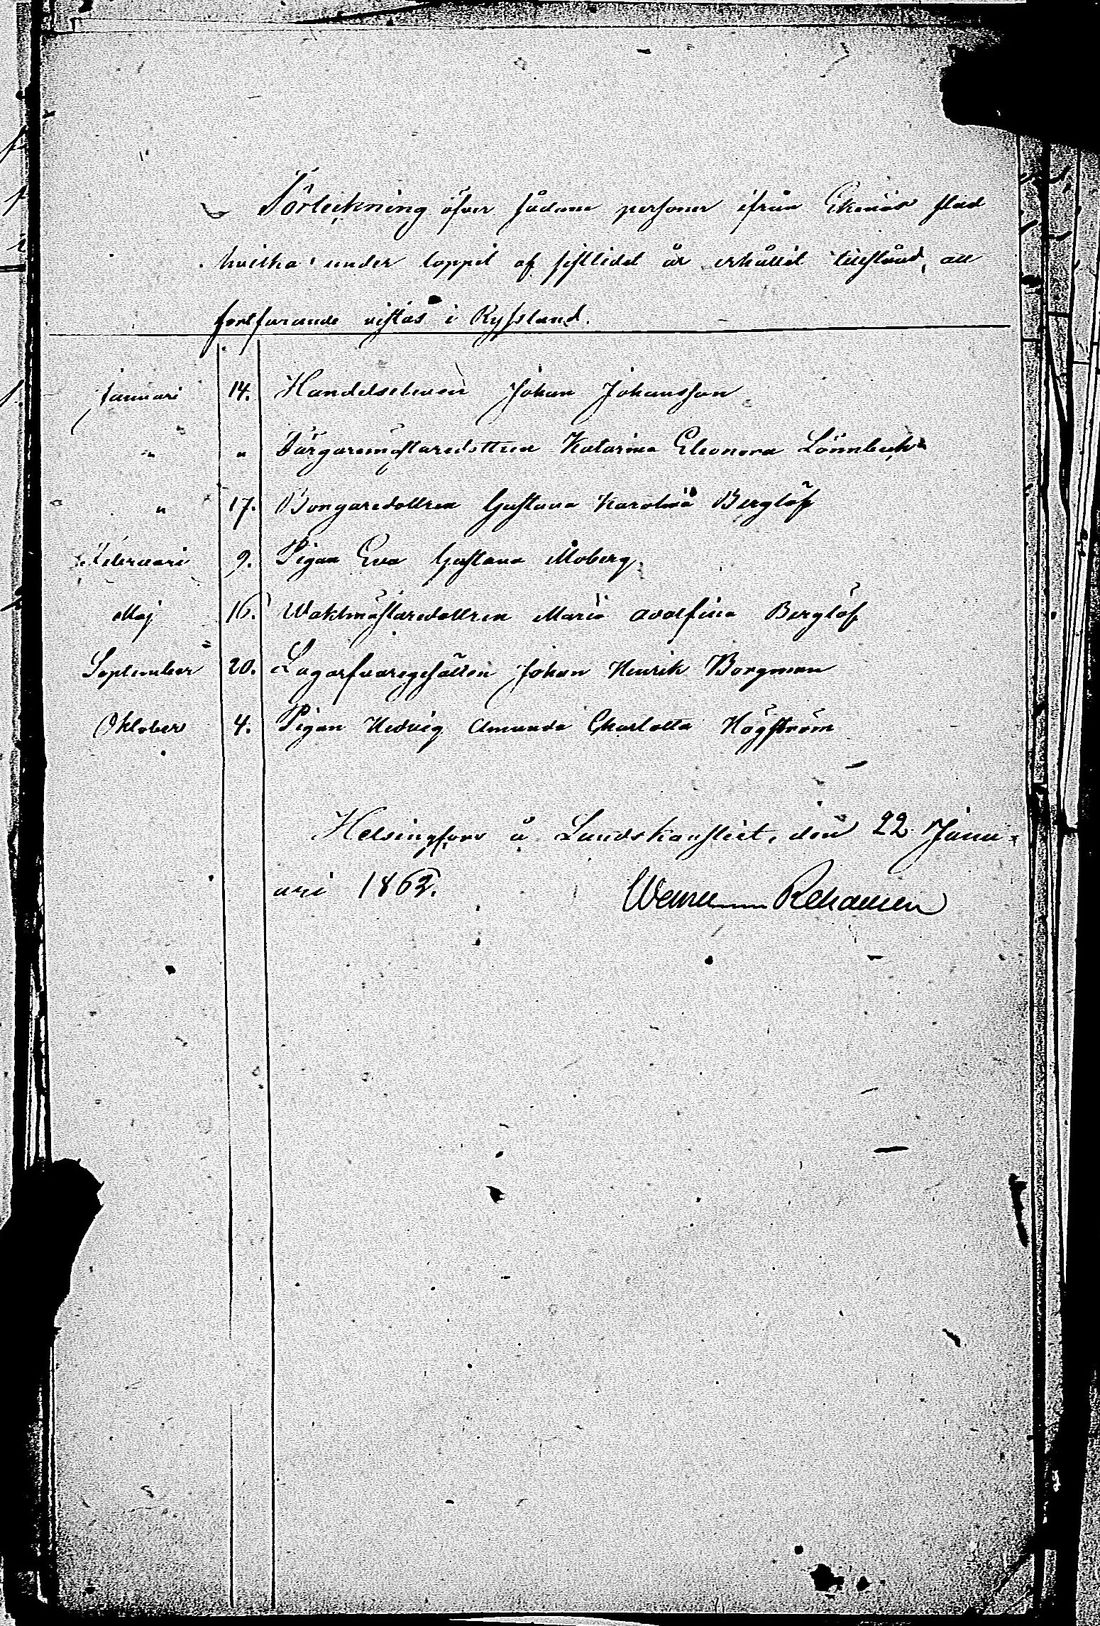 Förteckning öfver sådane personer ifrån Ekenäs stad
hvilka under loppet af sistlidet år erhållit tillstånd att
fortfarande vistas i Ryssland.
Januari 14. Handelseleven Johan Johansson
" " Färgaremästaredottren Katarina Eleonora Lönnbeck
" 17. Gustava Karolina Berglöf
Februari 9. Pigan Eva Gustava Moberg
Maj 16. Waktmästaredottren Maria Adolfina Berglöf
September 20. Johan Henrik Borgman
Oktober 4. Pigan Hedvig Amanda Charlotta Högström
Helsingfors å Landskansliet, den 22 Janu-
ari 1862.